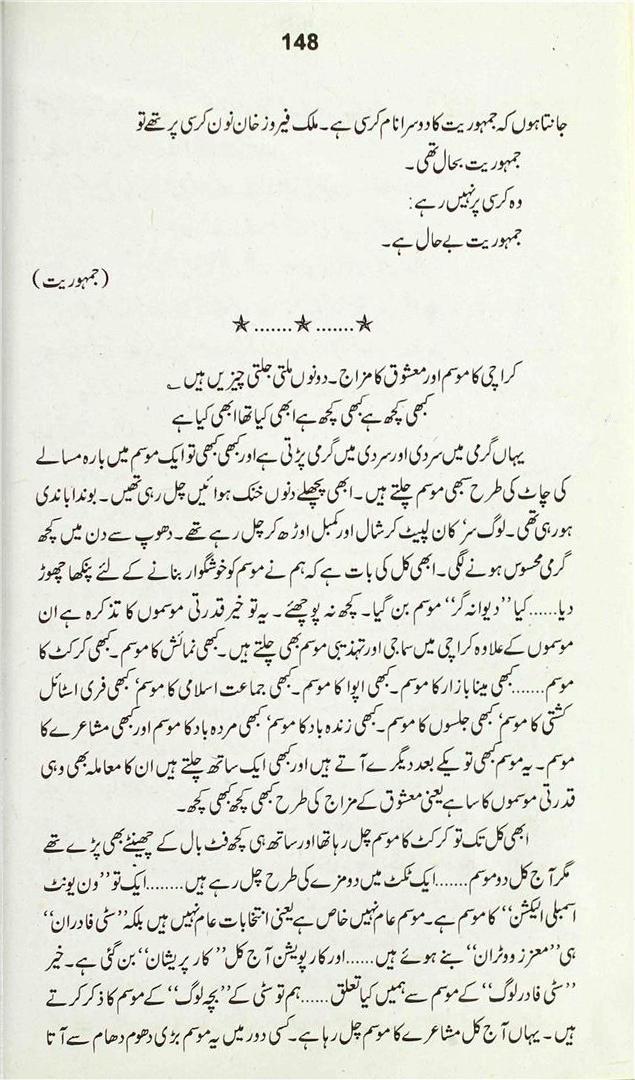 148
جانتا ہوں کہ جمہوریت کا دوسرا نام کرسی ہے۔ ملک فیروز خان نون کرسی پر تھے تو
جمہوریت بحال تھی۔
وہ کرسی پر نہیں رہے:
جمہوریت بے حال ہے۔
(جمہوریت)
★.......★.......★
کراچی کا موسم اور معشوق کا مزاج۔ دونوں ملتی جلتی چیزیں ہیں ؎
کبھی کچھ ہے کبھی کچھ ہے ابھی کیا تھا ابھی کیا ہے
یہاں گرمی میں سردی اور سردی میں گرمی پڑتی ہے اور کبھی کبھی تو ایک موسم میں بارہ مسالے
کی چاٹ کی طرح سبھی موسم چلتے ہیں۔ ابھی پچھلے دنوں خنک ہوائیں چل رہی تھیں۔ بوندا باندی
ہو رہی تھی۔ لوگ سر' کان لپیٹ کر شال اور کمبل اوڑھ کر چل رہے تھے۔ دھوپ سے دن میں کچھ
گرمی محسوس ہونے لگی۔ ابھی کل کی بات ہے کہ ہم نے موسم کو خوشگوار بنانے کے لئے پنکھا چھوڑ
دیا......کیا ”دیوانہ گر“ موسم بن گیا۔ کچھ نہ پوچھئے۔ یہ تو خیر قدرتی موسموں کا تذکرہ ہے ان
موسموں کے علاوہ کراچی میں سماجی اور تہذیبی موسم بھی چلتے ہیں۔ کبھی نمائش کا موسم۔ کبھی کرکٹ کا
موسم.......کبھی مینا بازار کا موسم۔ کبھی اپوا کا موسم۔ کبھی جماعت اسلامی کا موسم' کبھی فری اسٹائل
کشتی کا موسم' کبھی جلسوں کا موسم۔ کبھی زندہ باد کا موسم' کبھی مردہ باد کا موسم اور کبھی مشاعرے کا
موسم۔ یہ موسم کبھی تو یکے بعد دیگرے آتے ہیں اور کبھی ایک ساتھ چلتے ہیں ان کا معاملہ بھی وہی
قدرتی موسموں کا سا ہے یعنی معشوق کے مزاج کی طرح کبھی کچھ کبھی کچھ۔
ابھی کل تک تو کرکٹ کا موسم چل رہا تھا اور ساتھ ہی کچھ فٹ بال کے چھینٹے بھی پڑے تھے
مگر آج کل دو موسم.......ایک ٹکٹ میں دو مزے کی طرح چل رہے ہیں........ایک تو ”ون یونٹ
اسمبلی الیکشن“ کا موسم ہے۔ موسم عام نہیں خاص ہے یعنی انتخابات عام نہیں ہیں بلکہ ”سٹی فادران“
ہی ”معزز ووٹران“ بنے ہوئے ہیں......اور کارپویشن آج کل ”کار پریشان“ بن گئی ہے۔ خیر
”سٹی فادر لوگ“ کے موسم سے ہمیں کیا تعلق......ہم تو سٹی کے ”بچہ لوگ“ کے موسم کا ذکر کرتے
ہیں۔ یہاں آج کل مشاعرے کا موسم چل رہا ہے۔ کسی دور میں یہ موسم بڑی دھوم دھام سے آتا